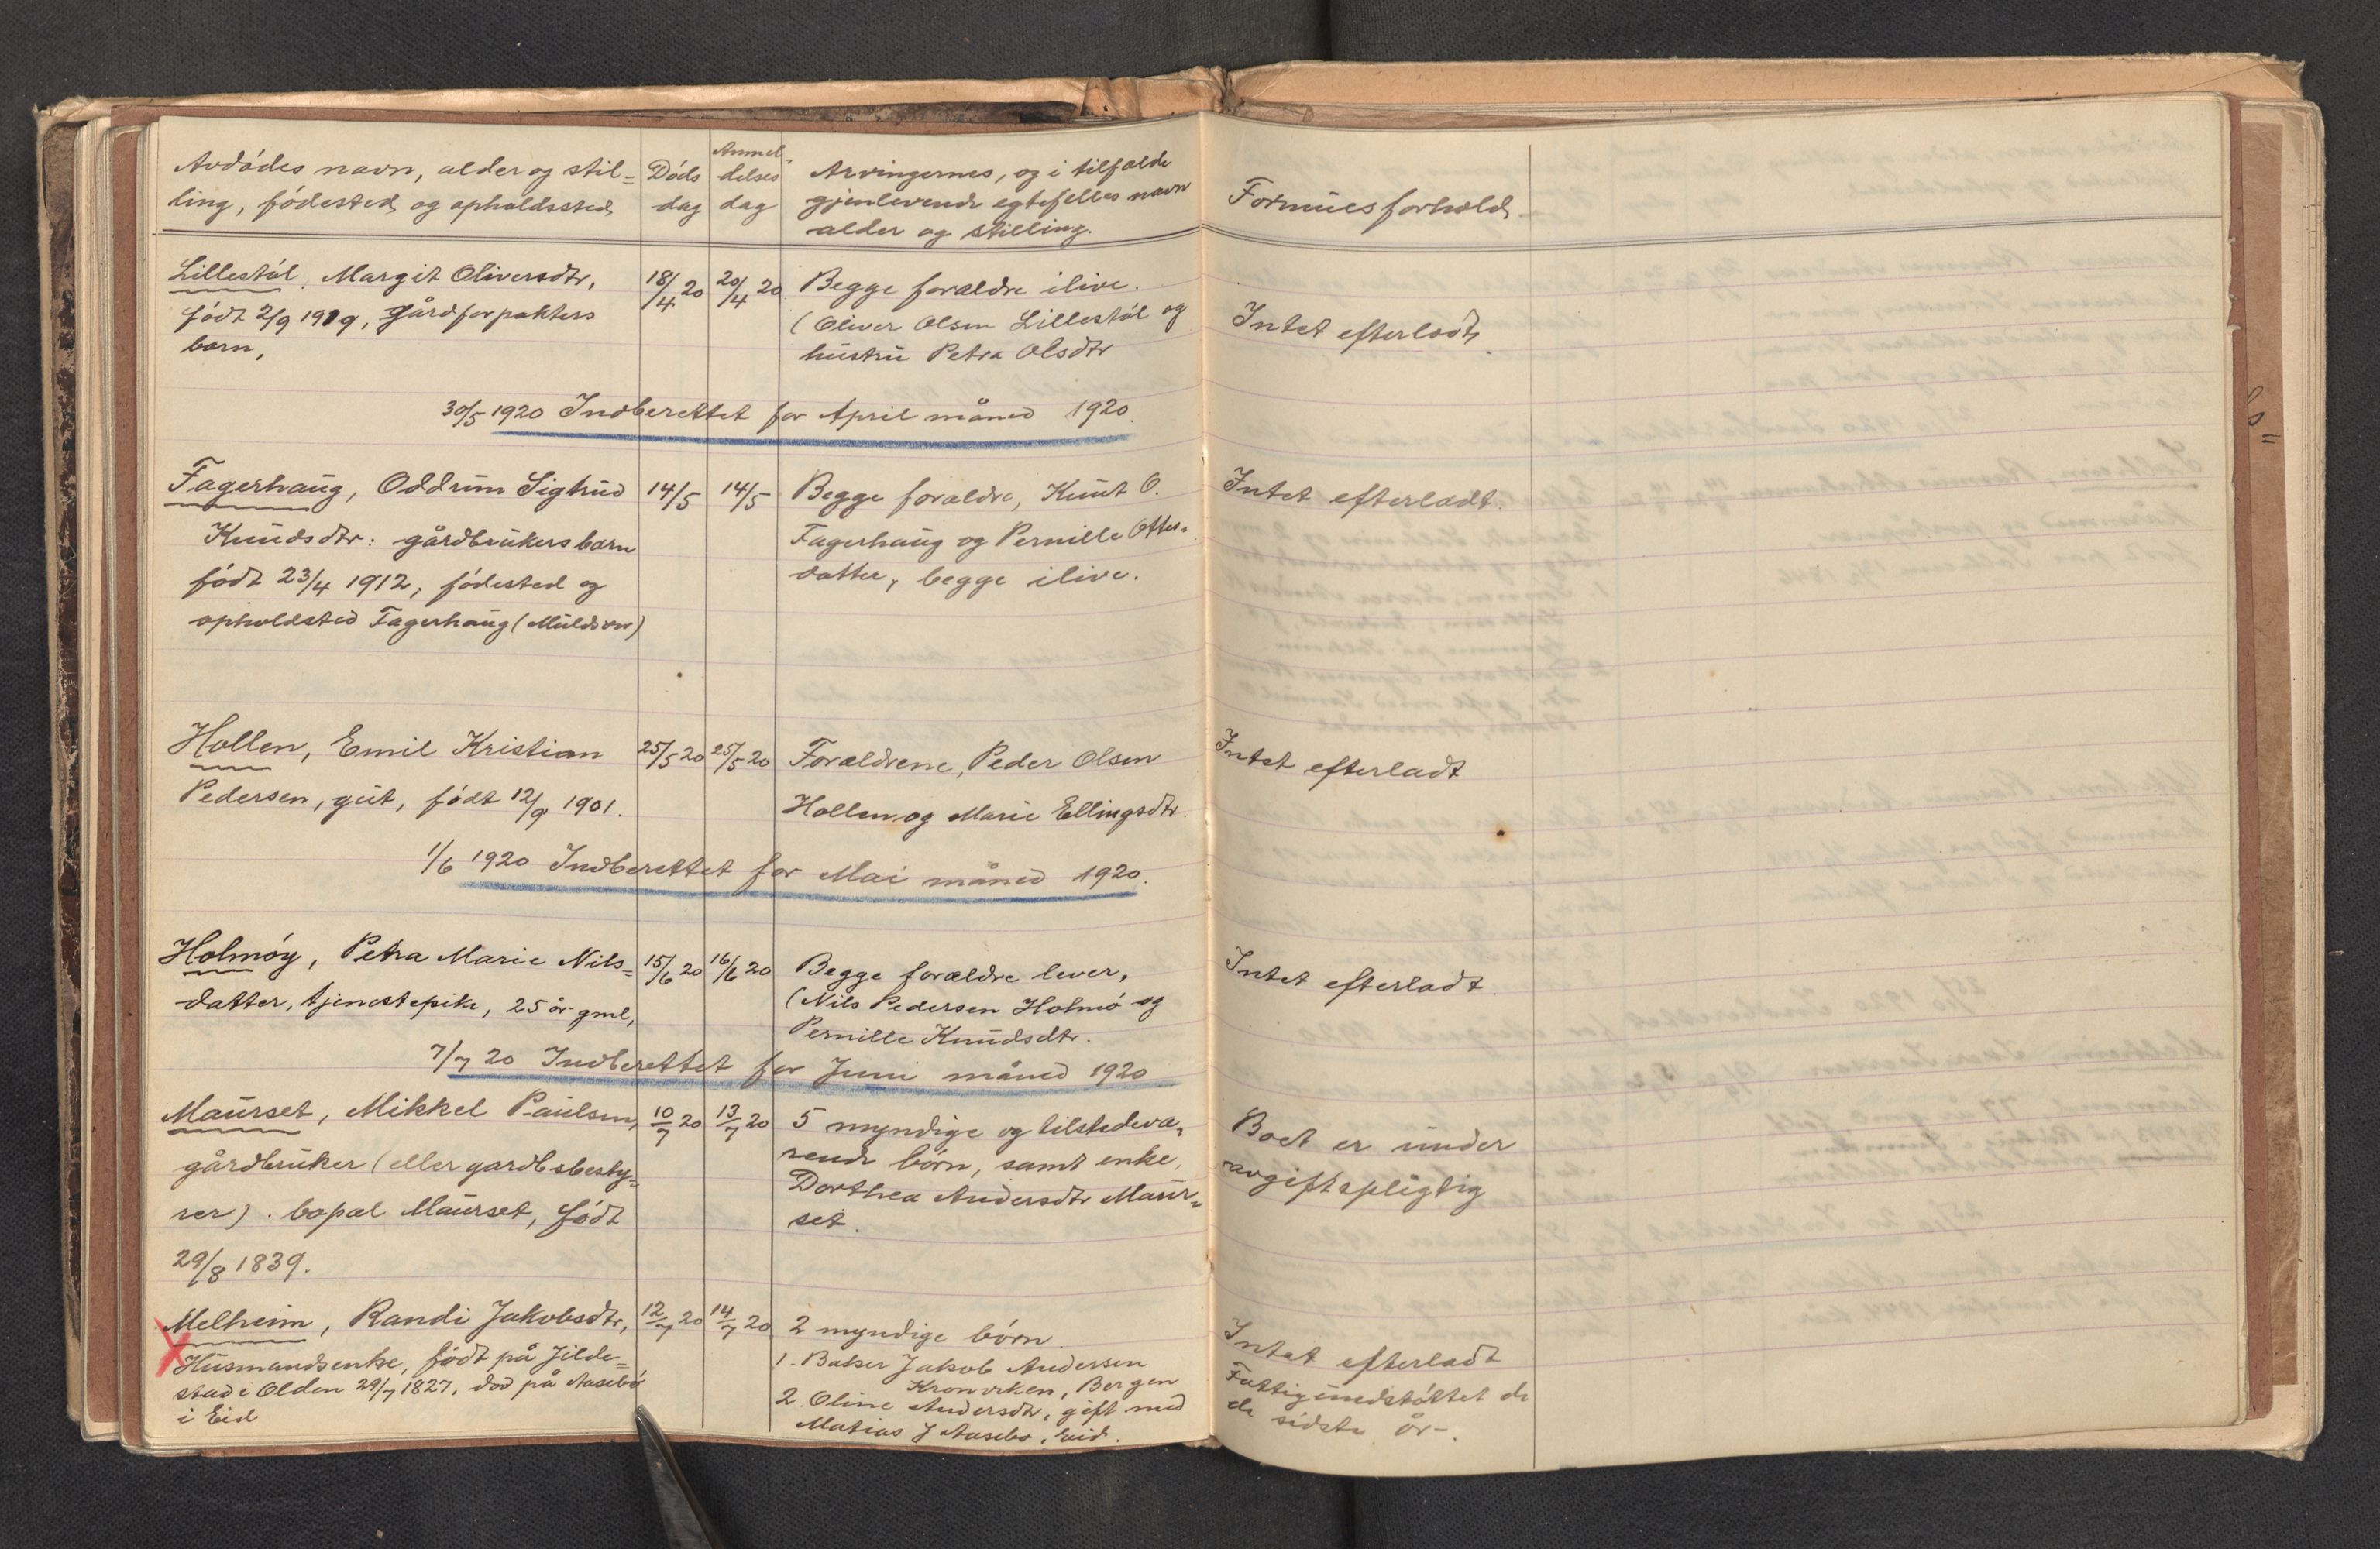 Avdødes navn, alder og stil=
ling, fødested og opholdssted
Døds
dag
Anmel-
delses
dag
Arvingernes, og i tilfælde
gjenlevende egtefelles navn
alder og stilling.
Formuesforhold
Lillestøl, Margit Oliversdtr,
født 2/9 1919, Gårdforpakters
barn,
18/4 20
20/4 20
Begge forældre ilive.
(Oliver Olsen Lillestøl og
hustru Petra Olsdtr
Intet efterladt
30/5 1920 Indberettet for April måned 1920.
Fagerhaug, Oddrun Sigtrud
Knudsdtr: gårdbrukersbarn
født 23/4 1912, fødested og
opholdsted Fagerhaug (Muldsvor)
14/5
14/5
Begge forældre, Knut O.
Fagerhaug og Pernille Ottes=
datter, begge ilive.
Intet efterladt.
Hollen, Emil Kristian
Pedersen, gut, født 12/9 1901.
25/5 20
25/5 20
Forældrene, Peder Olsen
Hollen og Marie Ellingsdtr.
Intet efterladt
1/6 1920 Indberettet for Mai måned 1920.
Holmøy, Petra Marie Nils=
datter, tjenestepike, 25 år gml,
15/6 20
16/6 20
Begge forældre lever,
(Nils Pedersen Holmø og
Pernille Knudsdtr.
Intet efterladt
7/7 20 Indberettet for Juni måned 1920
Maurset, Mikkel Paulsen,
gårdbruker (eller gardbsbesty=
rer). bopæl Maurset, født
29/8 1839.
10/7 20
13/7 20
5 myndige og tilstedevæ=
rende børn, samt enke,
Dorthea Andersdtr Maur=
set.
Boet er under
avgiftspligtig
Melheim, Randi Jakobsdtr,
Husmandsenke, født på Jilde=
stad i Olden 29/7 1827, død på Aasebø
i Eid
12/7 20
14/7 20
2 myndige børn
1. Baker Jakob Andersen
Kronviken, Bergen
2. Oline Andersdtr, gift med
Matias J Aasebø, Eid.
Intet efterladt
Fattigunderstøttet de
de sidste år.